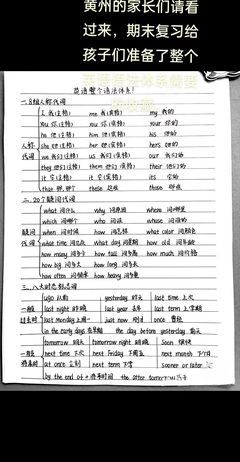 黄州的家长们请看
过来，期末复习给
孩子们准备了整个
英语语法体系
英语整个语法体系！
一.8组人称代词
I 我(主格) me 我(宾格) my 我的
you 你(主格) you 你(宾格) your 你的
he 他(主格) him 他(宾格) his 他的
人称 she 她(主格) her 她(宾格) hers 她的
代词 we 我们(主格) us 我们(宾格) our 我们的
they 他们(主格) them 他们(宾格) their 他们的
it 它(主格) it 它(宾格) its 它的
二.20个疑问代词
what 问什么 why 问原因 where 问哪里
which 问哪个 who 问谁 whose 问谁的
疑问 when 问时候 how 问怎样 what color 问颜色
代词 what time 问几点 what day 问星期 how old 问年龄
how many 问多少 how tall 问多高 how much 问价格
how big 问多大 how long 问多长
how often 问频率 how heavy 问重量
三.八大时态标志词
ago 以前 yesterday 昨天 last time 上次
一般 last night 昨晚 last year 去年 last term 上学期
过去时 last Monday 上周一 just now 刚才 once 曾经
in the early days 在早期 the day before yesterday 前天
tomorrow 明天 tomorrow night 明晚 soon 很快
一般 next time 下次 next Friday 下周五 next month 下个月
将来时 at once 立刻 next term 下学期 sooner or later
by the end of + 将来时间 the after tomorrow